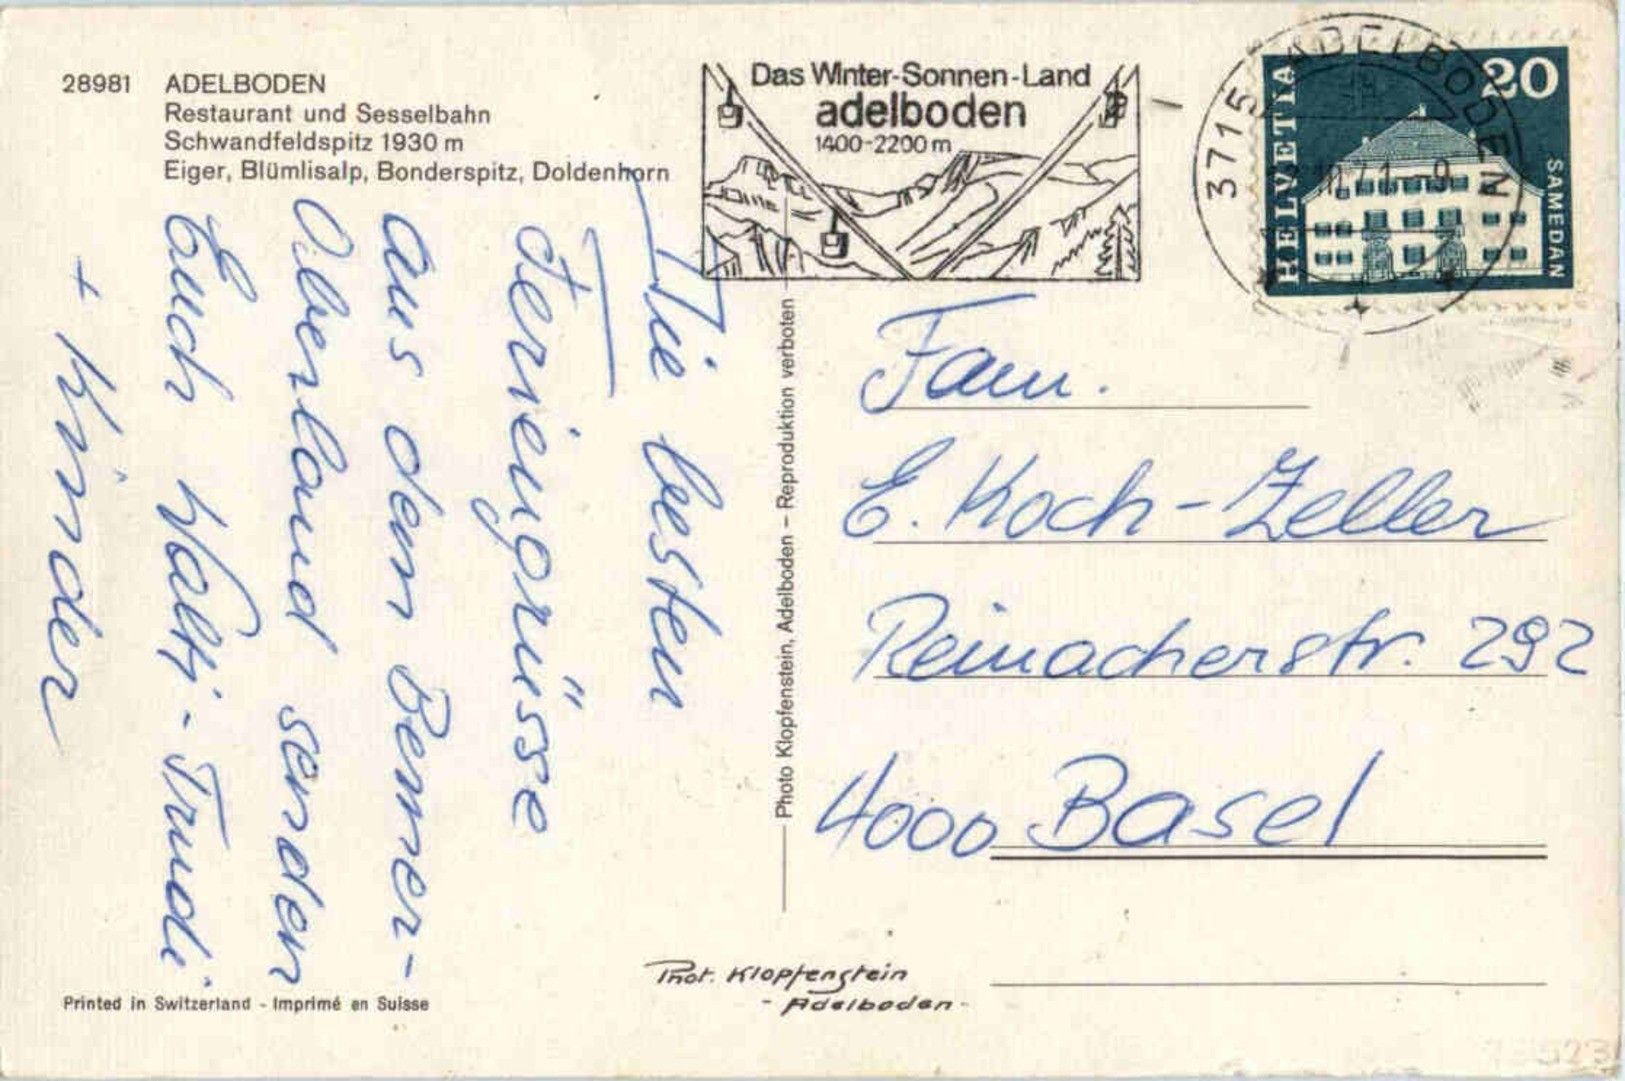 28981 ADELBODEN
Restaurant und Sesselbahn
Schwandfeldspitz 1930 m
Eiger, Blümlisalp, Bonderspitz, Doldenhorn
Das Winter-Sonnen-Land
adelboden
1400-2200 m
3715 ADELBODEN
71 -9
HELVETIA
20
SAMEDAN
Die besten
Feriengrüsse
aus dem Berner-
Oberland senden
Euch Walti - Trudi
+ Kinder
Photo Klopfenstein, Adelboden – Reproduktion verboten
Fam.
E. Koch-Zeller
Reinacherstr. 292
4000 Basel
Phot. Klopfenstein
- Adelboden -
Printed in Switzerland - Imprimé en Suisse